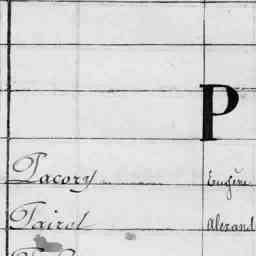 P
Pacory Eugène
Pairel Alexand